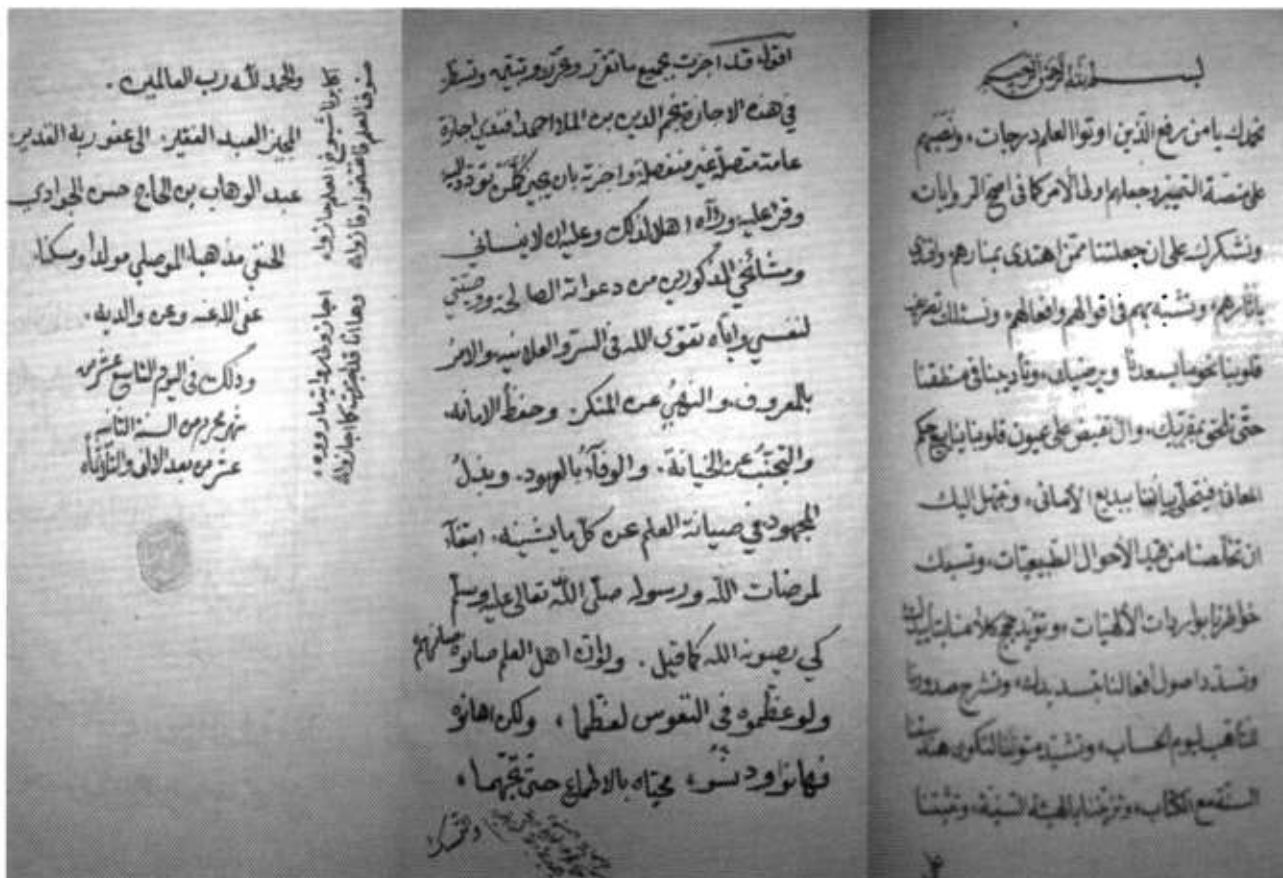 بسم الله الرحمن الرحيم
نحمدك يا من رفع الذين اوتوا العلم درجات، ونصبهم
على منصة التمييز وجعلهم اولى الأمر كما فى اصح الروايات
ونشكرك على ان جعلتنا ممن اهتدى بمنارهم واقتدى
بآثارهم، وتشبه بهم فى اقوالهم وافعالهم، ونسئلك
قلوبنا نحو ما يسعدنا ويرضيك، وتأديبنا فى منطقنا
حتى نلحق بمقربيك، وان تفيض على عيون قلوبنا ينابيع حكم
المعانى فيتحلى بياننا ببديع الأمانى، ونبتهل اليك
ان تخلصنا من قيد الأحوال الطبيعيات،
خواطرنا بواردات الألهيات، وتؤيد حجج كلامنا بتأييدك
وتسدد اصول افعالنا بتسديدك، وتشرح صدورنا
للتأهب ليوم الحساب،
السنة مع الكتاب، وتثبتنا
اقول قد اجزت بجميع ما تقرر وتحرر وتبين وتسطر
في هذه الاجازة نجم الدين بن الملا احمد افندي اجازة
عامة متصلة غير منفصلة واجزته بان يجيز كل من
وقرا عليه ورآه اهلا لذلك وعليه ان لا ينسانى
ومشائخي المذكورين من دعواته الصالحة ووصيتي
لنفسي واياه تقوى الله فى السر والعلانيه والامر
بالمعروف، والنهي عن المنكر. وحفظ الامانه،
والتجنب عن الخيانة. والوفآء بالعهود. وبذل
المجهود، في صيانة العلم عن كل ما يشينه. ابتغآء
لمرضات الله ورسوله صلى الله تعالى عليه وسلم
كي يصونه الله كما قيل. ولو ان اهل العلم صانوه صانهم
ولو عظموه فى النفوس لعظما، ولكن اهانوه
فهانوا ودنسوا، محياه بالاطماع حتى تجهما،
اكابرنا شيوخ العلم حازوا،
اجازوا
وها انا قد اجزته كما اجازوا
والحمد لله رب العالمين.
المجيز العبد الفقير. الى عفو ربه القدير
عبد الوهاب بن الحاج حسن الجوادي
الحنفي مذهبا. الموصلي مولدا ومسكنا.
عفى الله عنه وعن والديه.
وذلك في اليوم التاسع عشر من
شهر محرم من السنة الثانيه
عشر من بعد الالف والثلاثمأة